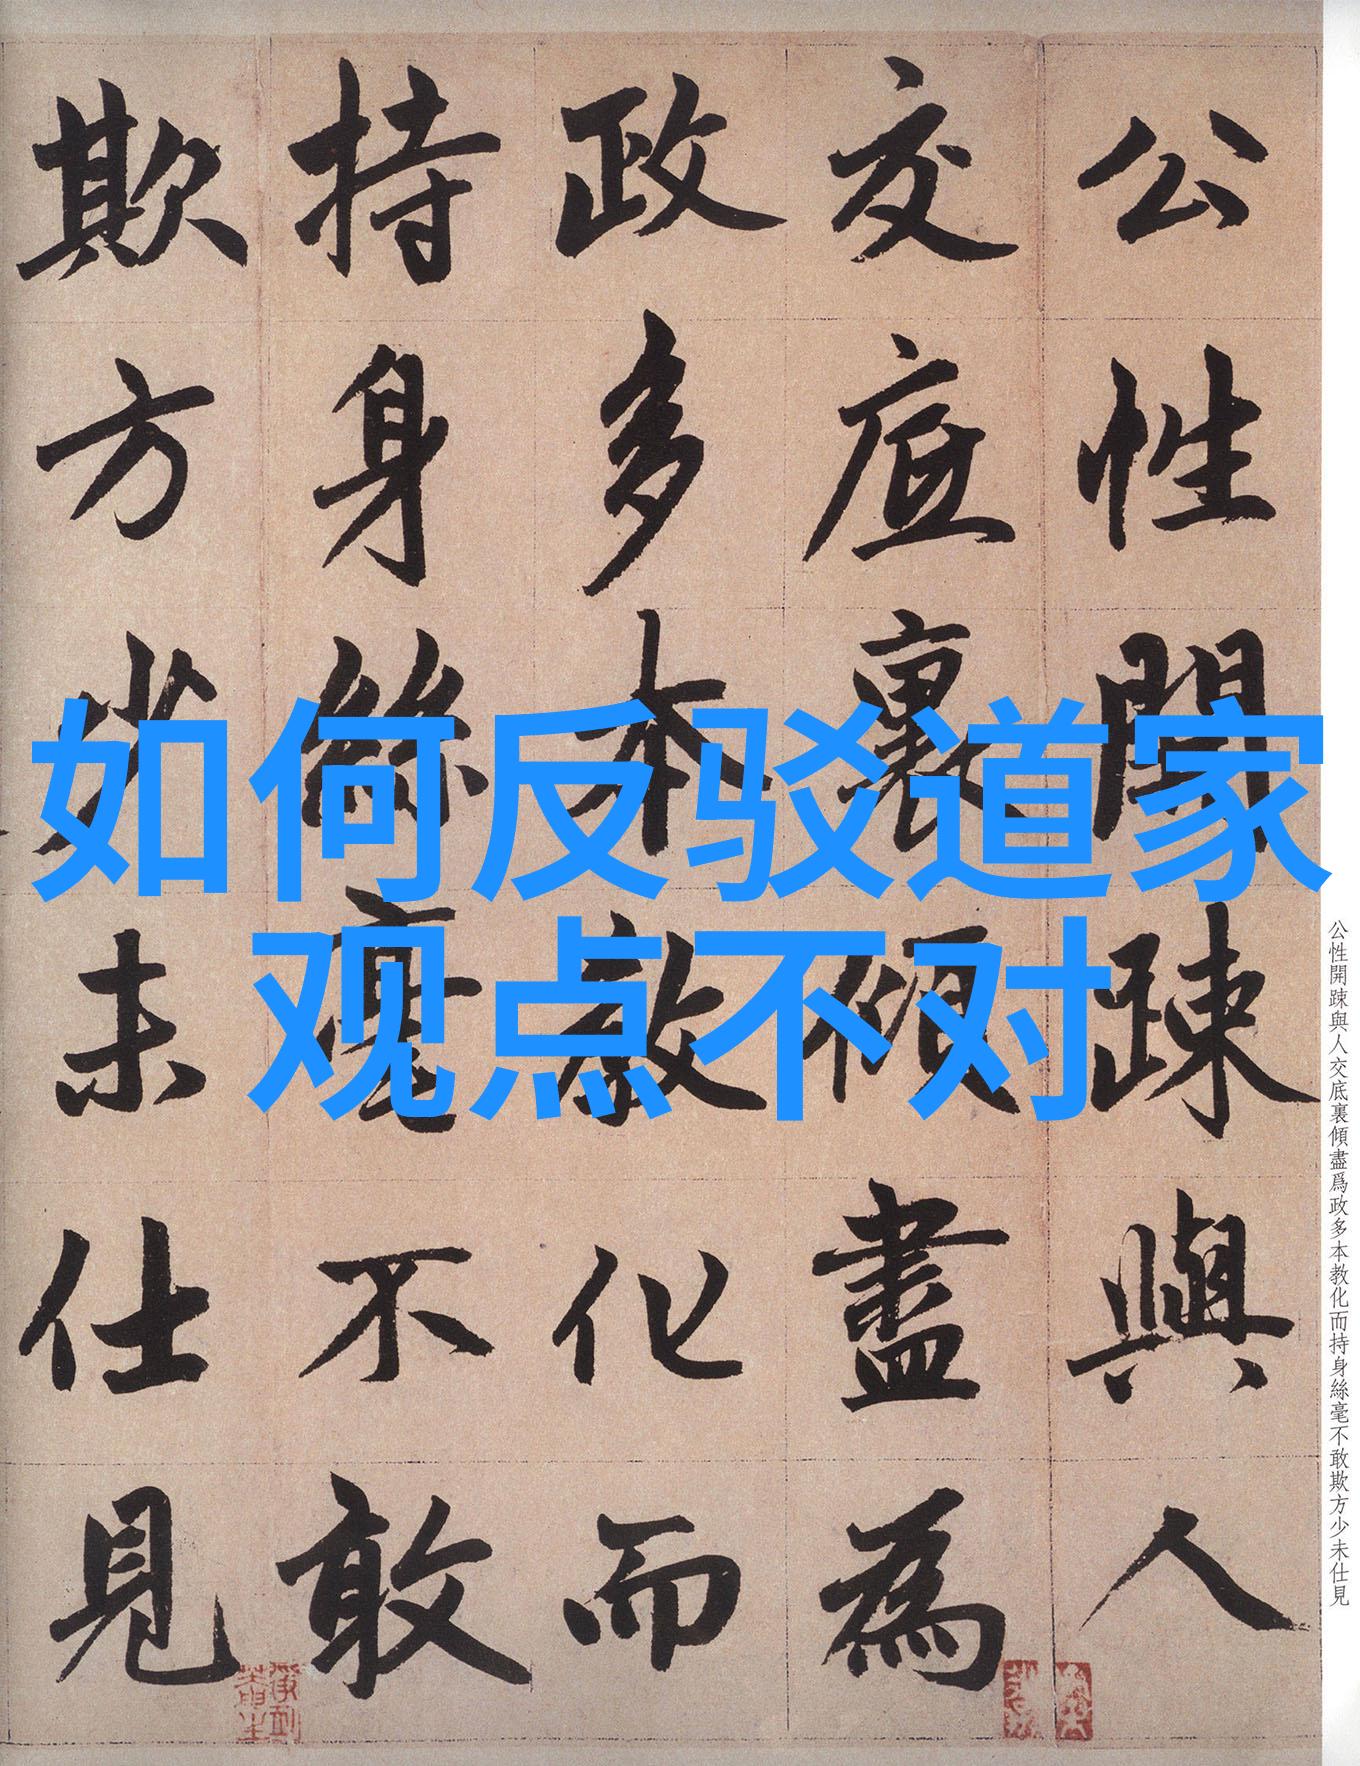 如何反驳道家
观点不对
公性開疎與人
交底裏傾盡為
政多本教化而
持身絲毫不敢
欺方少未仕見
公性開疎與人交底裏傾盡爲政多本教化而持身絲毫不敢欺方少未仕見